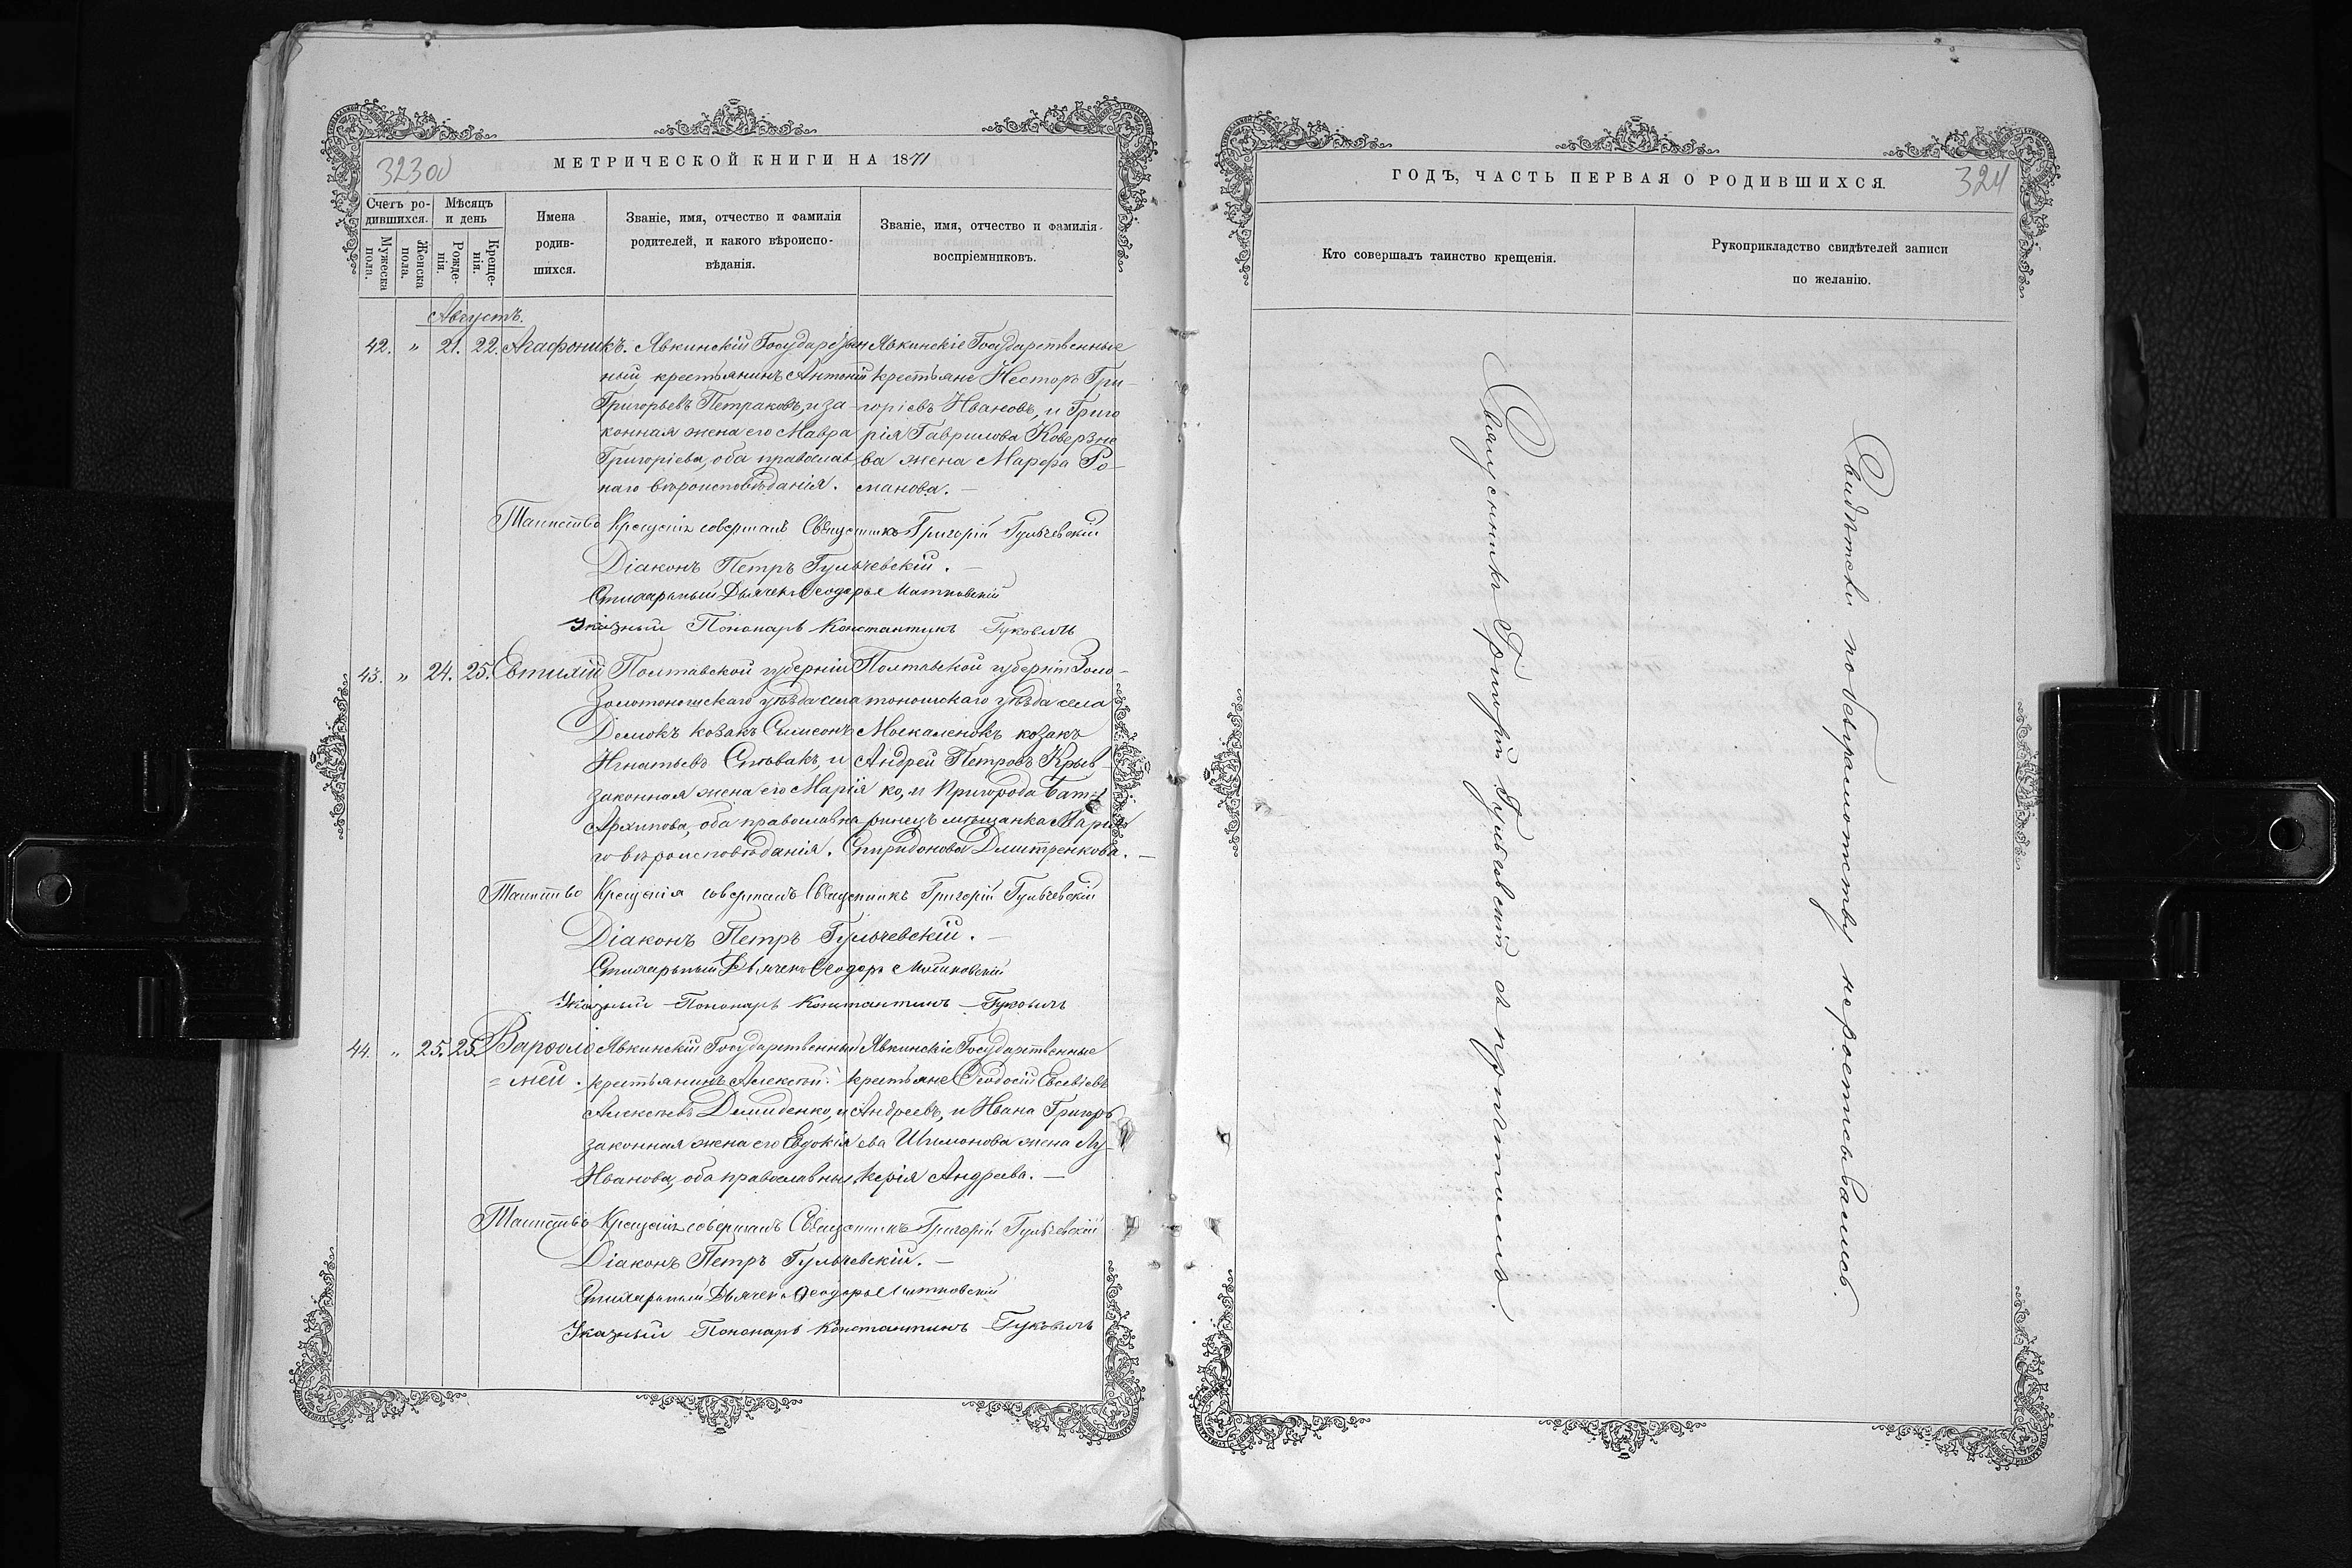 323об
МЕТРИЧЕСКОЙ КНИГИ НА 1871
Счетъ ро-
дившихся.
Мужеска
пола.
Женска
пола.
Мѣсяцъ
и день
Рожде-
нія.
Креще-
нія.
Имена
родив-
шихся.
Званіе, имя, отчество и фамилія
родителей, и какого вѣроиспо-
вѣданія.
Званіе, имя, отчество и фамилія
воспріемниковъ.
Августъ.
42. " 21. 22. Агафоникъ.
Явкинскій Государствен
ный крестьянинъ Антоній
Григорьевъ Петраковъ, и за-
конная жена его Мавра
Григоріева, оба православ
наго вѣроисповѣданія.
Явкинскіе Государственные
крестьяне Несторъ Гри-
горіевъ Ивановъ, и Григо
рія Гаврилова Коверзне
ва жена Марфа Ро-
манова. —
Таинство Крещенія совершалъ Священникъ Григорій Гульчевскій
Діаконъ Петръ Гульчевскій. —
Стихарный Дьячекъ Ѳеодоръ
Указный Пономарь Константинъ Гуковичъ
43. " 24. 25. Евтихій
Полтавской губерніи
Золотоношскаго уѣзда села
Демокъ козакъ Симеонъ
Игнатьевъ Спивакъ, и
законная жена его Марія
Архипова, оба православна
го вѣроисповѣданія.
Полтавской губерніи Золо-
тоношскаго уѣзда села
Москаленокъ козакъ
Андрей Петровъ Крыв
ко, и Пригорода
мѣщанка Марія
Спиридонова Дмитренкова. —
Таинство Крещенія совершалъ Священникъ Григорій Гульчевскій
Діаконъ Петръ Гульчевскій. —
Стихарный Дьячекъ Ѳеодоръ
Указный Пономарь Константинъ Гуковичъ
44. " 25. 25. Варѳоло
=мей.
Явкинскій Государственный
крестьянинъ Алексѣй
Алексѣевъ Демиденко, и
законная жена его Евдокія
Иванова, оба православны
Явкинскіе Государственные
крестьяне Ѳеодосій Евсевіевъ
Андреевъ, и Ивана Григорь
ева Шимонова жена Лу-
керія Андреева. —
Таинство Крещенія совершалъ Священникъ Григорій Гульчевскій
Діаконъ Петръ Гульчевскій. —
Стихарный Дьячекъ Ѳеодоръ
Указный Пономарь Константинъ Гуковичъ
ГОДЪ, ЧАСТЬ ПЕРВАЯ О РОДИВШИХСЯ.
324
Кто совершалъ таинство крещенія.
Рукоприкладство свидѣтелей записи
по желанію.
Священникъ Григорій Гульчевскій съ причтомъ.
Свидѣтели по безграмотству не